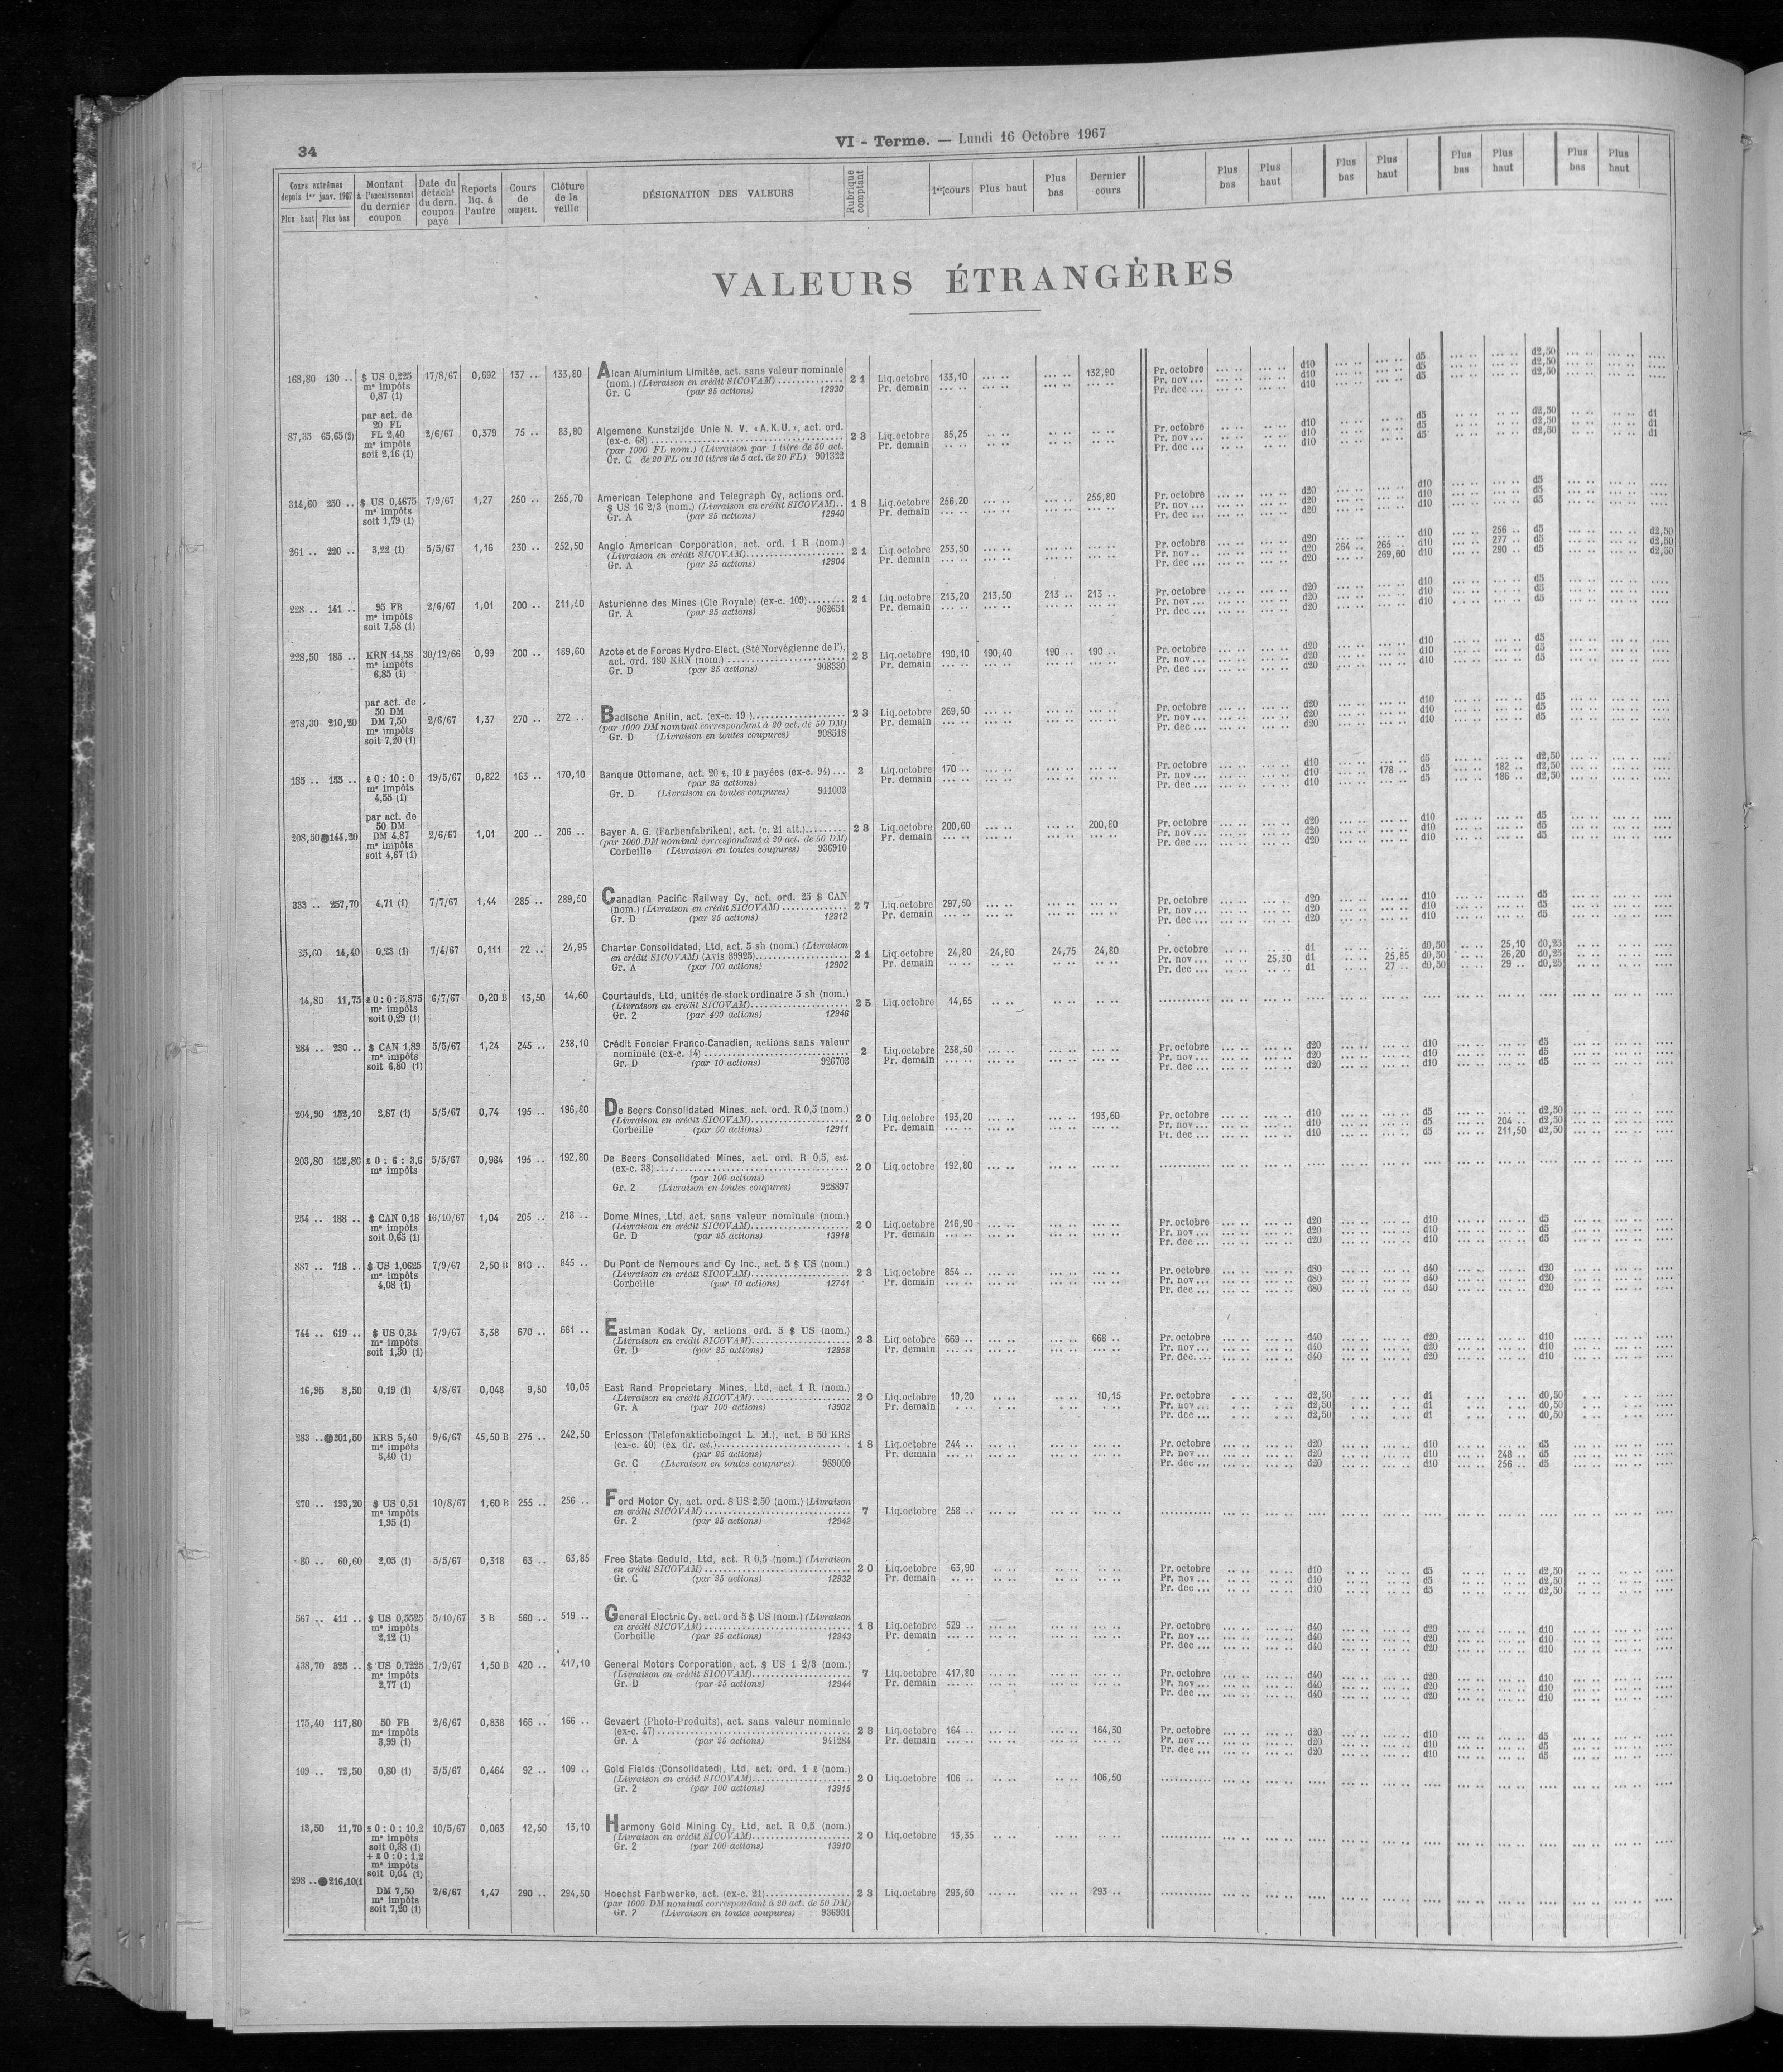 34
VI - Terme. — Lundi 16 Octobre 1967
Cours extrêmes depuis 1er janv. 1967 Plus haut Plus bas
Montant à l'encaissement du dernier coupon
Date du détacht du dern. coupon payé
Reports liq. à l'autre
Cours de compens.
Clôture de la veille
DÉSIGNATION DES VALEURS
Rubrique comptant
1er cours Plus haut Plus bas Dernier cours
Plus bas Plus haut Plus bas Plus haut Plus bas Plus haut Plus bas Plus haut
VALEURS ÉTRANGÈRES
168,80 130 .. $ US 0,225 17/8/67 0,692 137 .. 133,80 Alcan Aluminium Limitée, act. sans valeur nominale 21 Liq.octobre 133,10 132,90 Pr. octobre d10 d5 d2,50
me impôts (nom.) (Livraison en crédit SICOVAM) Pr. demain Pr. nov... d10 d5 d2,50
0,87 (1) Gr. C (par 25 actions) 12930 Pr. dec ... d10 d5 d2,50
par act. de
20 FL
87,35 65,65(2) FL 2,40 2/6/67 0,379 75 .. 83,80 Algemene Kunstzijde Unie N. V. «A.K.U.», act. ord. 23 Liq.octobre 85,25 Pr. octobre d10 d5 d2,50 d1
me impôts (ex-c. 68) Pr. demain Pr. nov... d10 d5 d2,50 d1
soit 2,16 (1) (par 1000 FL nom.) (Livraison par 1 titre de 50 act. Pr. dec ... d10 d5 d2,50 d1
Gr. C de 20 FL ou 10 titres de 5 act. de 20 FL) 901322
314,60 250 .. $ US 0,4675 7/9/67 1,27 250 .. 255,70 American Telephone and Telegraph Cy, actions ord. 18 Liq.octobre 256,20 255,80 Pr. octobre d20 d10 d5
me impôts $ US 16 2/3 (nom.) (Livraison en crédit SICOVAM).. Pr. demain Pr. nov... d20 d10 d5
soit 1,79 (1) Gr. A (par 25 actions) 12940 Pr. dec ... d20 d10 d5
261 .. 220 .. 3,22 (1) 5/5/67 1,16 230 .. 252,50 Anglo American Corporation, act. ord. 1 R (nom.) 21 Liq.octobre 253,50 Pr. octobre d20 d10 256 .. d5 d2,50
(Livraison en crédit SICOVAM) Pr. demain Pr. nov.. d20 264 .. 265 .. d10 277 .. d5 d2,50
Gr. A (par 25 actions) 12904 Pr. dec ... d20 269,60 d10 290 .. d5 d2,50
228 .. 141 .. 95 FB 2/6/67 1,01 200 .. 211,50 Asturienne des Mines (Cie Royale) (ex-c. 109) 21 Liq.octobre 213,20 213,50 213 .. 213 .. Pr. octobre d20 d10 d5
me impôts Gr. A (par 25 actions) 962651 Pr. demain Pr. nov... d20 d10 d5
soit 7,58 (1) Pr. dec ... d20 d10 d5
228,50 185 .. KRN 14,58 30/12/66 0,99 200 .. 189,60 Azote et de Forces Hydro-Elect. (Sté Norvégienne de l'), 23 Liq.octobre 190,10 190,40 190 .. 190 .. Pr. octobre d20 d10 d5
me impôts act. ord. 180 KRN (nom.) Pr. demain Pr. nov... d20 d10 d5
6,85 (1) Gr. D (par 25 actions) 908330 Pr. dec ... d20 d10 d5
par act. de
50 DM
278,30 210,20 DM 7,50 2/6/67 1,37 270 .. 272 .. Badische Anilin, act. (ex-c. 19) 23 Liq.octobre 269,50 Pr. octobre d20 d10 d5
me impôts (par 1000 DM nominal correspondant à 20 act. de 50 DM) Pr. demain Pr. nov... d20 d10 d5
soit 7,20 (1) Gr. D (Livraison en toutes coupures) 908518 Pr. dec ... d20 d10 d5
185 .. 155 .. £ 0 : 10 : 0 19/5/67 0,822 163 .. 170,10 Banque Ottomane, act. 20 £, 10 £ payées (ex-c. 94)... 2 Liq.octobre 170 .. Pr. octobre d10 d5 d2,50
me impôts (par 25 actions) Pr. demain Pr. nov... d10 178 .. d5 182 .. d2,50
4,55 (1) Gr. D (Livraison en toutes coupures) 911003 Pr. dec ... d10 d5 186 .. d2,50
par act. de
50 DM
208,50 144,20 DM 4,87 2/6/67 1,01 200 .. 206 .. Bayer A. G. (Farbenfabriken), act. (c. 21 att.) 23 Liq.octobre 200,60 200,80 Pr. octobre d20 d10 d5
me impôts (par 1000 DM nominal correspondant à 20 act. de 50 DM) Pr. demain Pr. nov... d20 d10 d5
soit 4,67 (1) Corbeille (Livraison en toutes coupures) 936910 Pr. dec ... d20 d10 d5
333 .. 257,70 4,71 (1) 7/7/67 1,44 285 .. 289,50 Canadian Pacific Railway Cy, act. ord. 25 $ CAN 27 Liq.octobre 297,50 Pr. octobre d20 d10 d5
(nom.) (Livraison en crédit SICOVAM) Pr. demain Pr. nov... d20 d10 d5
Gr. D (par 25 actions) 12912 Pr. dec ... d20 d10 d5
25,60 14,40 0,23 (1) 7/4/67 0,111 22 .. 24,95 Charter Consolidated, Ltd, act. 5 sh (nom.) (Livraison 21 Liq.octobre 24,80 24,80 24,75 24,80 Pr. octobre d1 d0,50 25,10 d0,25
en crédit SICOVAM) (Avis 39925) Pr. demain Pr. nov... 25,30 d1 25,85 d0,50 26,20 d0,25
Gr. A (par 100 actions) 12902 Pr. dec ... d1 27 .. d0,50 29 .. d0,25
14,80 11,75 £ 0 : 0 : 5,875 6/7/67 0,20 B 13,50 14,60 Courtaulds, Ltd, unités de stock ordinaire 5 sh (nom.) 25 Liq.octobre 14,65
me impôts (Livraison en crédit SICOVAM)
soit 0,29 (1) Gr. 2 (par 400 actions) 12946
284 .. 230 .. $ CAN 1,89 5/5/67 1,24 245 .. 238,10 Crédit Foncier Franco-Canadien, actions sans valeur 2 Liq.octobre 238,50 Pr. octobre d20 d10 d5
me impôts nominale (ex-c. 14) Pr. demain Pr. nov... d20 d10 d5
soit 6,80 (1) Gr. D (par 10 actions) 926703 Pr. dec ... d20 d10 d5
204,90 152,10 2,87 (1) 5/5/67 0,74 195 .. 196,80 De Beers Consolidated Mines, act. ord. R 0,5 (nom.) 20 Liq.octobre 193,20 193,60 Pr. octobre d10 d5 d2,50
(Livraison en crédit SICOVAM) Pr. demain Pr. nov... d10 d5 204 .. d2,50
Corbeille (par 50 actions) 12911 Pr. dec ... d10 d5 211,50 d2,50
203,80 152,80 £ 0 : 6 : 3,6 5/5/67 0,984 195 .. 192,80 De Beers Consolidated Mines, act. ord. R 0,5, est. 20 Liq.octobre 192,80
me impôts (ex-c. 38)
(par 100 actions)
Gr. 2 (Livraison en toutes coupures) 928897
254 .. 188 .. $ CAN 0,18 16/10/67 1,04 205 .. 218 .. Dome Mines, Ltd, act. sans valeur nominale (nom.) 20 Liq.octobre 216,90 Pr. octobre d20 d10 d5
me impôts (Livraison en crédit SICOVAM) Pr. demain Pr. nov... d20 d10 d5
soit 0,65 (1) Gr. D (par 25 actions) 13918 Pr. dec ... d20 d10 d5
887 .. 718 .. $ US 1,0625 7/9/67 2,50 B 810 .. 845 .. Du Pont de Nemours and Cy Inc., act. 5 $ US (nom.) 23 Liq.octobre 854 .. Pr. octobre d80 d40 d20
me impôts (Livraison en crédit SICOVAM) Pr. demain Pr. nov... d80 d40 d20
4,08 (1) Corbeille (par 10 actions) 12741 Pr. dec ... d80 d40 d20
744 .. 619 .. $ US 0,34 7/9/67 3,38 670 .. 661 .. Eastman Kodak Cy, actions ord. 5 $ US (nom.) 23 Liq.octobre 669 .. 668 .. Pr. octobre d40 d20 d10
me impôts (Livraison en crédit SICOVAM) Pr. demain Pr. nov... d40 d20 d10
soit 1,30 (1) Gr. D (par 25 actions) 12958 Pr. déc.... d40 d20 d10
16,95 8,50 0,19 (1) 4/8/67 0,048 9,50 10,05 East Rand Proprietary Mines, Ltd, act 1 R (nom.) 20 Liq.octobre 10,20 10,15 Pr. octobre d2,50 d1 d0,50
(Livraison en crédit SICOVAM) Pr. demain Pr. nov... d2,50 d1 d0,50
Gr. A (par 100 actions) 13902 Pr. dec ... d2,50 d1 d0,50
283 .. 201,50 KRS 5,40 9/6/67 45,50 B 275 .. 242,50 Ericsson (Telefonaktiebolaget L. M.), act. B 50 KRS 18 Liq.octobre 244 .. Pr. octobre d20 d10 d5
me impôts (ex-c. 40) (ex dr. est.) Pr. demain Pr. nov... d20 d10 248 .. d5
3,40 (1) (par 25 actions) Pr. dec ... d20 d10 256 .. d5
Gr. C (Livraison en toutes coupures) 989009
270 .. 193,20 $ US 0,51 10/8/67 1,60 B 255 .. 256 .. Ford Motor Cy, act. ord. $ US 2,50 (nom.) (Livraison 7 Liq.octobre 258 ..
me impôts en crédit SICOVAM)
1,95 (1) Gr. 2 (par 25 actions) 12942
80 .. 60,60 2,05 (1) 5/5/67 0,318 63 .. 63,85 Free State Geduld, Ltd, act. R 0,5 (nom.) (Livraison 20 Liq.octobre 63,90 Pr. octobre d10 d5 d2,50
en crédit SICOVAM) Pr. demain Pr. nov... d10 d5 d2,50
Gr. C (par 25 actions) 12932 Pr. dec ... d10 d5 d2,50
567 .. 411 .. $ US 0,5525 5/10/67 3 B 560 .. 519 .. General Electric Cy, act. ord 5 $ US (nom.) (Livraison 18 Liq.octobre 529 .. Pr. octobre d40 d20 d10
me impôts en crédit SICOVAM) Pr. demain Pr. nov... d40 d20 d10
2,12 (1) Corbeille (par 25 actions) 12943 Pr. dec ... d40 d20 d10
438,70 325 .. $ US 0,7225 7/9/67 1,50 B 420 .. 417,10 General Motors Corporation, act. $ US 1 2/3 (nom.) 7 Liq.octobre 417,80 Pr. octobre d40 d20 d10
me impôts (Livraison en crédit SICOVAM) Pr. demain Pr. nov... d40 d20 d10
2,77 (1) Gr. D (par 25 actions) 12944 Pr. dec ... d40 d20 d10
175,40 117,80 50 FB 2/6/67 0,838 166 .. 166 .. Gevaert (Photo-Produits), act. sans valeur nominale 23 Liq.octobre 164 .. 164,30 Pr. octobre d20 d10 d5
me impôts (ex-c. 47) Pr. demain Pr. nov... d20 d10 d5
3,99 (1) Gr. A (par 25 actions) 941284 Pr. dec ... d20 d10 d5
109 .. 72,50 0,80 (1) 5/5/67 0,464 92 .. 109 .. Gold Fields (Consolidated), Ltd, act. ord. 1 £ (nom.) 20 Liq.octobre 106 .. 106,50
(Livraison en crédit SICOVAM)
Gr. 2 (par 100 actions) 13915
13,50 11,70 £ 0 : 0 : 10,2 10/5/67 0,063 12,50 13,10 Harmony Gold Mining Cy, Ltd, act. R 0,5 (nom.) 20 Liq.octobre 13,35
me impôts (Livraison en crédit SICOVAM)
soit 0,38 (1) Gr. 2 (par 100 actions) 13910
+ £ 0 : 0 : 1,2
me impôts
soit 0,04 (1)
298 .. 216,10(1
DM 7,50 2/6/67 1,47 290 .. 294,50 Hoechst Farbwerke, act. (ex-c. 21) 23 Liq.octobre 293,50 293 ..
me impôts (par 1000 DM nominal correspondant à 20 act. de 50 DM)
soit 7,20 (1) Gr. 2 (Livraison en toutes coupures) 936931